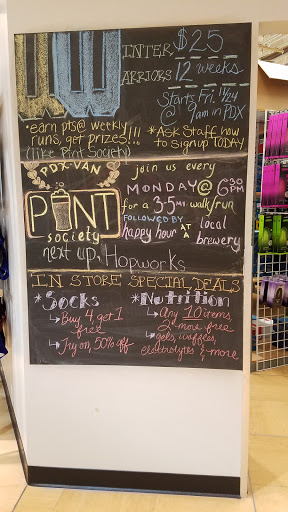 WINTER $25
WARRIORS 12 weeks
Starts Fri. 11/24
@ 9am in PDX
*earn pts @ weekly
runs, get prizes!!!
(like Pint Society)
*Ask Staff how
to signup TODAY
PDX·VAN
PINT
society
next up: Hopworks
join us every
MONDAY @ 6:30 PM
for a 3-5 mi walk/run
FOLLOWED BY
happy hour AT A local
brewery
IN STORE SPECIAL DEALS
*Socks
↳ Buy 4 get 1
free
↳ Try on, 50% off
*Nutrition
↳ Any 10 items,
2 more free
↳ gels, waffles,
electrolytes & more